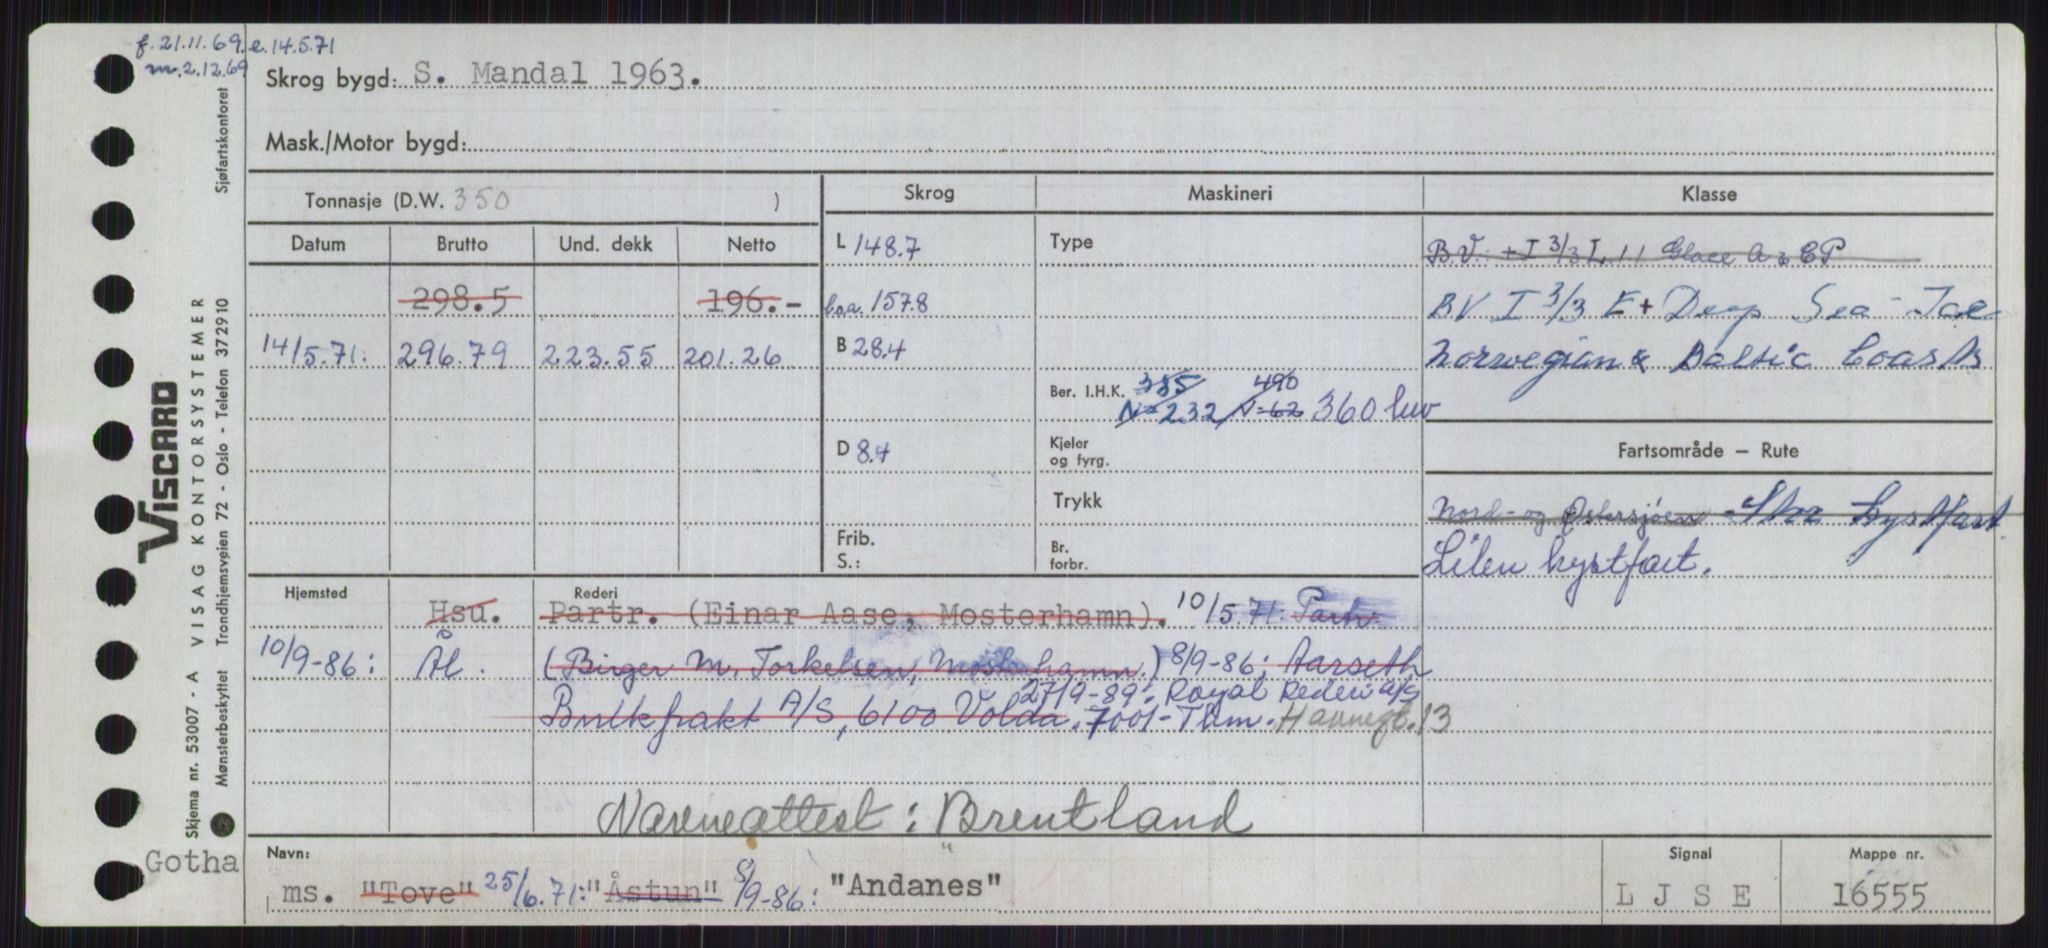 f. 21.11.69. e. 14.5.71
m. 2.12.69
Skrog bygd: S. Mandal 1963.
Mask./Motor bygd:
Sjøfartskontoret
Tonnasje (D.W. 350 )
Skrog Maskineri Klasse
Datum Brutto Und. dekk Netto
L 148.7 Type
B.V. + I 3/3 L 1.1 Glace CP
298.5 196.-
boa. 157.8
BV I 3/3 E + Deep Sea - Ice
14/5.71: 296.79 223.55 201.26
B 28.4
Norwegian & Baltic Coasts
Ber. I.H.K. 385 490
N=232 N=62 360 huv
D 8.4 Kjeler og fyrg.
Fartsområde - Rute
Trykk
Nord- og Østersjøen Stor kystfart.
Frib.
S.:
Br. forbr.
Liten kystfart.
Hjemsted Rederi
Hsu. Partr. (Einar Aase, Mosterhamn). 10/5.71. Partr.
10/9-86: Ål. (Birger M. Torkelsen, Mosterhamn.) 8/9-86: Aarseth
27/9-89: Royal Rederi a/s
Bulkfrakt A/S, 6100 Volda. 7001-Thm. 13
Navneattest: Brentland
Navn: Signal Mappe nr.
Gotha
ms. "Tove" 25/6.71: "Åstun" 8/9-86: "Andanes" LJSE 16555
VISCARD
VISAG KONTORSYSTEMER
Skjema nr. 53007 - A
Mønsterbeskyttet Trondhjemsveien 72 - Oslo - Telefon 372910